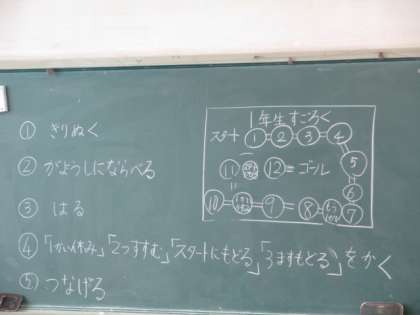 ① きりぬく
② がようしにならべる
③ はる
④「1かい休み」「2つすすむ」「スタートにもどる」「3ますもどる」をかく
⑤ つなげる
1年生すごろく
スタート ① = ② = ③ = ④
⑤
⑥
⑦
⑧
⑨
⑩
⑪
⑫ = ゴール